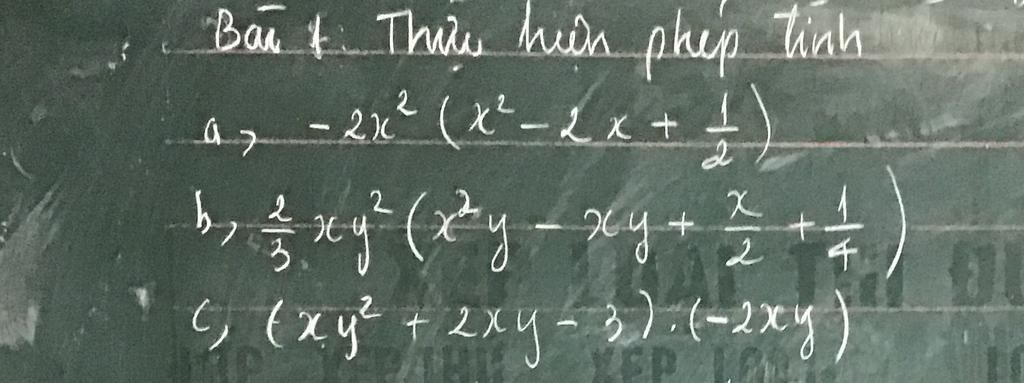 Bài 1: Thực hiện phép tính
a, -2x² (x² - 2x + 1/2)
b, 2/3 xy² (x²y - xy + x/2 + 1/4)
c, (xy² + 2xy - 3).(-2xy)